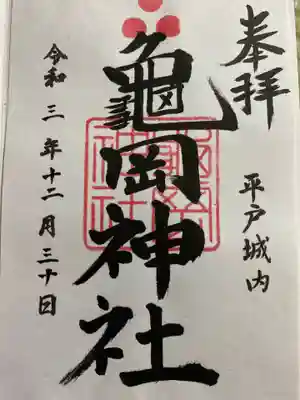 奉拝
平戸城内
龜岡神社
令和三年十二月三十日